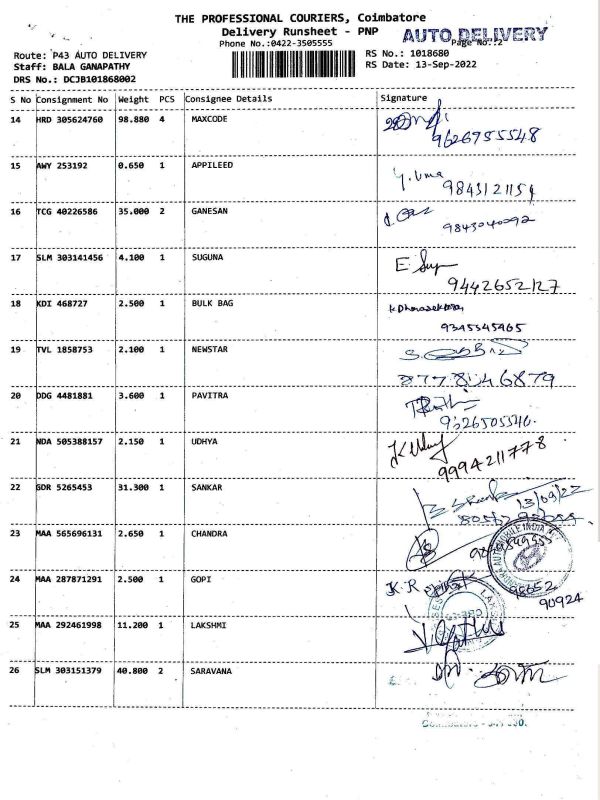 THE PROFESSIONAL COURIERS, Coimbatore
Delivery Runsheet - PNP
AUTO DELIVERY
Phone No.:0422-3505555
Page No.:2
Route: P43 AUTO DELIVERY
RS No.: 1018680
Staff: BALA GANAPATHY
RS Date: 13-Sep-2022
DRS No.: DCJB101868002
S No Consignment No Weight PCS Consignee Details Signature
14 HRD 305624760 98.880 4 MAXCODE
9626755548
15 AWY 253192 0.650 1 APPILEED Y. Uma
9843121154
16 TCG 40226586 35.000 2 GANESAN
9843040092
17 SLM 303141456 4.100 1 SUGUNA
9442652127
18 KDI 468727 2.500 1 BULK BAG
9345345465
19 TVL 1858753 2.100 1 NEWSTAR
20 DDG 4481881 3.600 1 PAVITRA
21 NDA 505388157 2.150 1 UDHYA
9994211778
22 GDR 5265453 31.300 1 SANKAR
13/09/22
23 MAA 565696131 2.650 1 CHANDRA
24 MAA 287871291 2.500 1 GOPI
98652
90924
25 MAA 292461998 11.200 1 LAKSHMI
26 SLM 303151379 40.800 2 SARAVANA